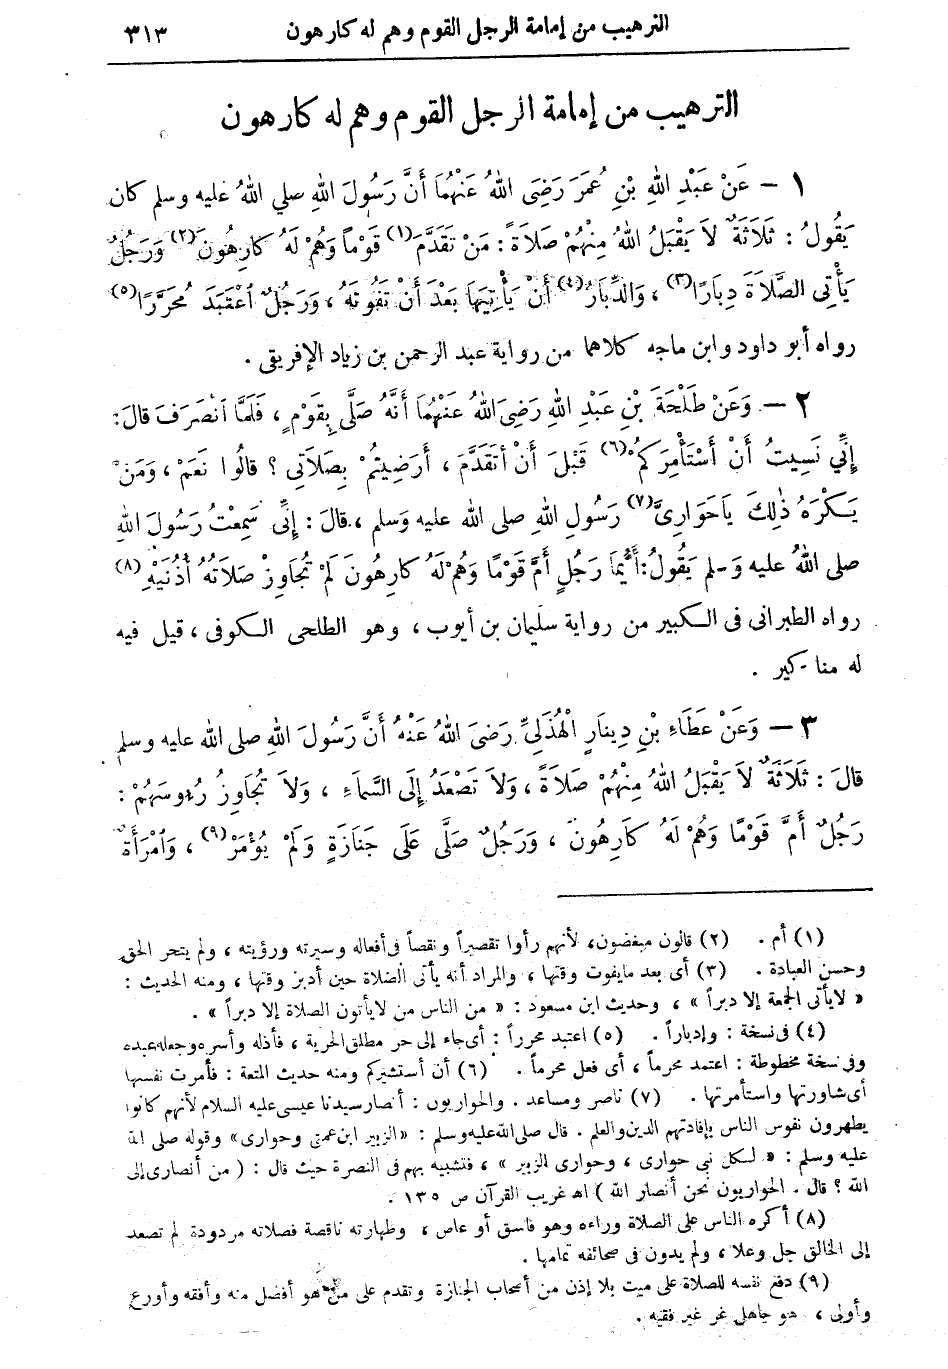 الترهيب من إمامة الرجل القوم وهم له كارهون ٣١٣
الترهيب من إمامة الرجل القوم وهم له كارهون
١ – عَنْ عَبْدِ اللهِ بْنِ عُمَرَ رَضِىَ اللهُ عَنْهُمَا أَنَّ رَسُولَ اللهِ صلي اللهُ عليه وسلم كان
يَقُولُ : ثَلَاثَةٌ لاَ يَقْبَلُ اللهُ مِنْهُمْ صَلاَةً : مَنْ تَقَدَّمَ (١) قَوْماً وَهُمْ لَهُ كارِهُونَ (٢) وَرَجُلٌ
يَأْتِى الصَّلاَةَ دِبَارًا (٣) ، وَالدِّبَارُ (٤) أَنْ يَأْتِيَهَا بَعْدَ أَنْ تَفُوتَهُ ، وَرَجُلٌ اُعْتَبَدَ مُحَرَّرًا (٥)
رواه أبو داود وابن ماجه كلاهما من رواية عبد الرحمن بن زياد الإفريقى .
٢ – وَعَنْ طَلْحَةَ بْنِ عَبْدِ اللهِ رَضِىَ اللهُ عَنْهُمَا أَنَّهُ صَلَّى بِقَوْمٍ ، فَلَمَّا اُنْصَرَفَ قالَ :
إِنِّي نَسِيتُ أَنْ أَسْتَأْمِرَكُمْ (٦) قَبْلَ أَنْ أَتَقَدَّمَ ، أَرَضِيتُمْ بِصَلاَتِى ؟ قالُوا نَعَمْ ، وَمَنْ
يَكْرَهُ ذٰلِكَ يَاحَوَارِىَّ (٧) رَسُولِ اللهِ صلى الله عليه وَسلم ، قالَ : إِنِّى سَمِعْتُ رَسُولَ اللهِ
صلى اللهُ عليه وسلم يَقُولُ : أَيُّمَا رَجُلٍ أَمَّ قَوْمًا وَهُمْ لَهُ كارِهُونَ لَمْ تُجَاوِزْ صَلاَتُهُ أُذُنَيْهِ (٨)
رواه الطبرانى فى الكبير من رواية سليمان بن أيوب ، وهو الطلحى الكوفى ، قيل فيه
له مناكير .
٣ – وَعَنْ عَطَاءِ بْنِ دِينَارٍ الْهُذَلِيِّ رَضِىَ اللهُ عَنْهُ أَنَّ رَسُولَ اللهِ صلى الله عليه وسلم
قالَ : ثَلَاثَةٌ لاَ يَقْبَلُ اللهُ مِنْهُمْ صَلاَةً ، وَلاَ تَصْعَدُ إِلَى السَّمَاءِ ، وَلاَ تُجَاوِزُ رُءوسَهُمْ :
رَجُلٌ أَمَّ قَوْمًا وَهُمْ لَهُ كَارِهُونَ ، وَرَجُلٌ صَلَّى عَلَى جَنَازَةٍ وَلَمْ يُؤْمَرْ (٩) ، وَاُمْرَأَةٌ
(١) أم . (٢) قالون مبغضون ، لأنهم رأوا تقصيراً ونقصاً فى أفعاله وسيرته ورؤيته ، ولم يتحر الحق
وحسن العبادة . (٣) أى بعد مايفوت وقتها ، والمراد أنه يأتى الصلاة حين أدبر وقتها ، ومنه الحديث :
« لايأتى الجمعة إلا دبراً » ، وحديث ابن مسعود : « من الناس من لايأتون الصلاة إلا دبراً » .
(٤) فى نسخة : وإدباراً . (٥) اعتبد محرراً : أى جاء إلى حر مطلق الحرية ، فأذله وأسره وجعله عبده
وفى نسخة مخطوطة : اعتمد محرماً ، أى فعل محرماً . (٦) أن أستشيركم ومنه حديث المتعة : فأمرت نفسها
أى شاورتها واستأمرتها . (٧) ناصر ومساعد . والحواريون : أنصار سيدنا عيسى عليه السلام لأنهم كانوا
يطهرون نفوس الناس بإفادتهم الدين والعلم . قال صلى الله عليه وسلم : «الزبير ابن عمتى وحوارى» وقوله صلى الله
عليه وسلم : « لكل نبى حوارى ، وحوارى الزبير » ، فتشبيه بهم فى النصرة حيث قال : ( من أنصارى إلى
الله ؟ قال . الحواريون نحن أنصار الله ) اهـ غريب القرآن ص ١٣٥ .
(٨) أكره الناس على الصلاة وراءه وهو فاسق أو عاص ، وطهارته ناقصة فصلاته مردودة لم تصعد
إلى الخالق جل وعلا ، ولم يدون فى صحائفه تمامها .
(٩) دفع نفسه للصلاة على ميت بلا إذن من أصحاب الجنازة وتقدم على من هو أفضل منه وأفقه وأورع
وأولى ، هو جاهل غر غير فقيه .